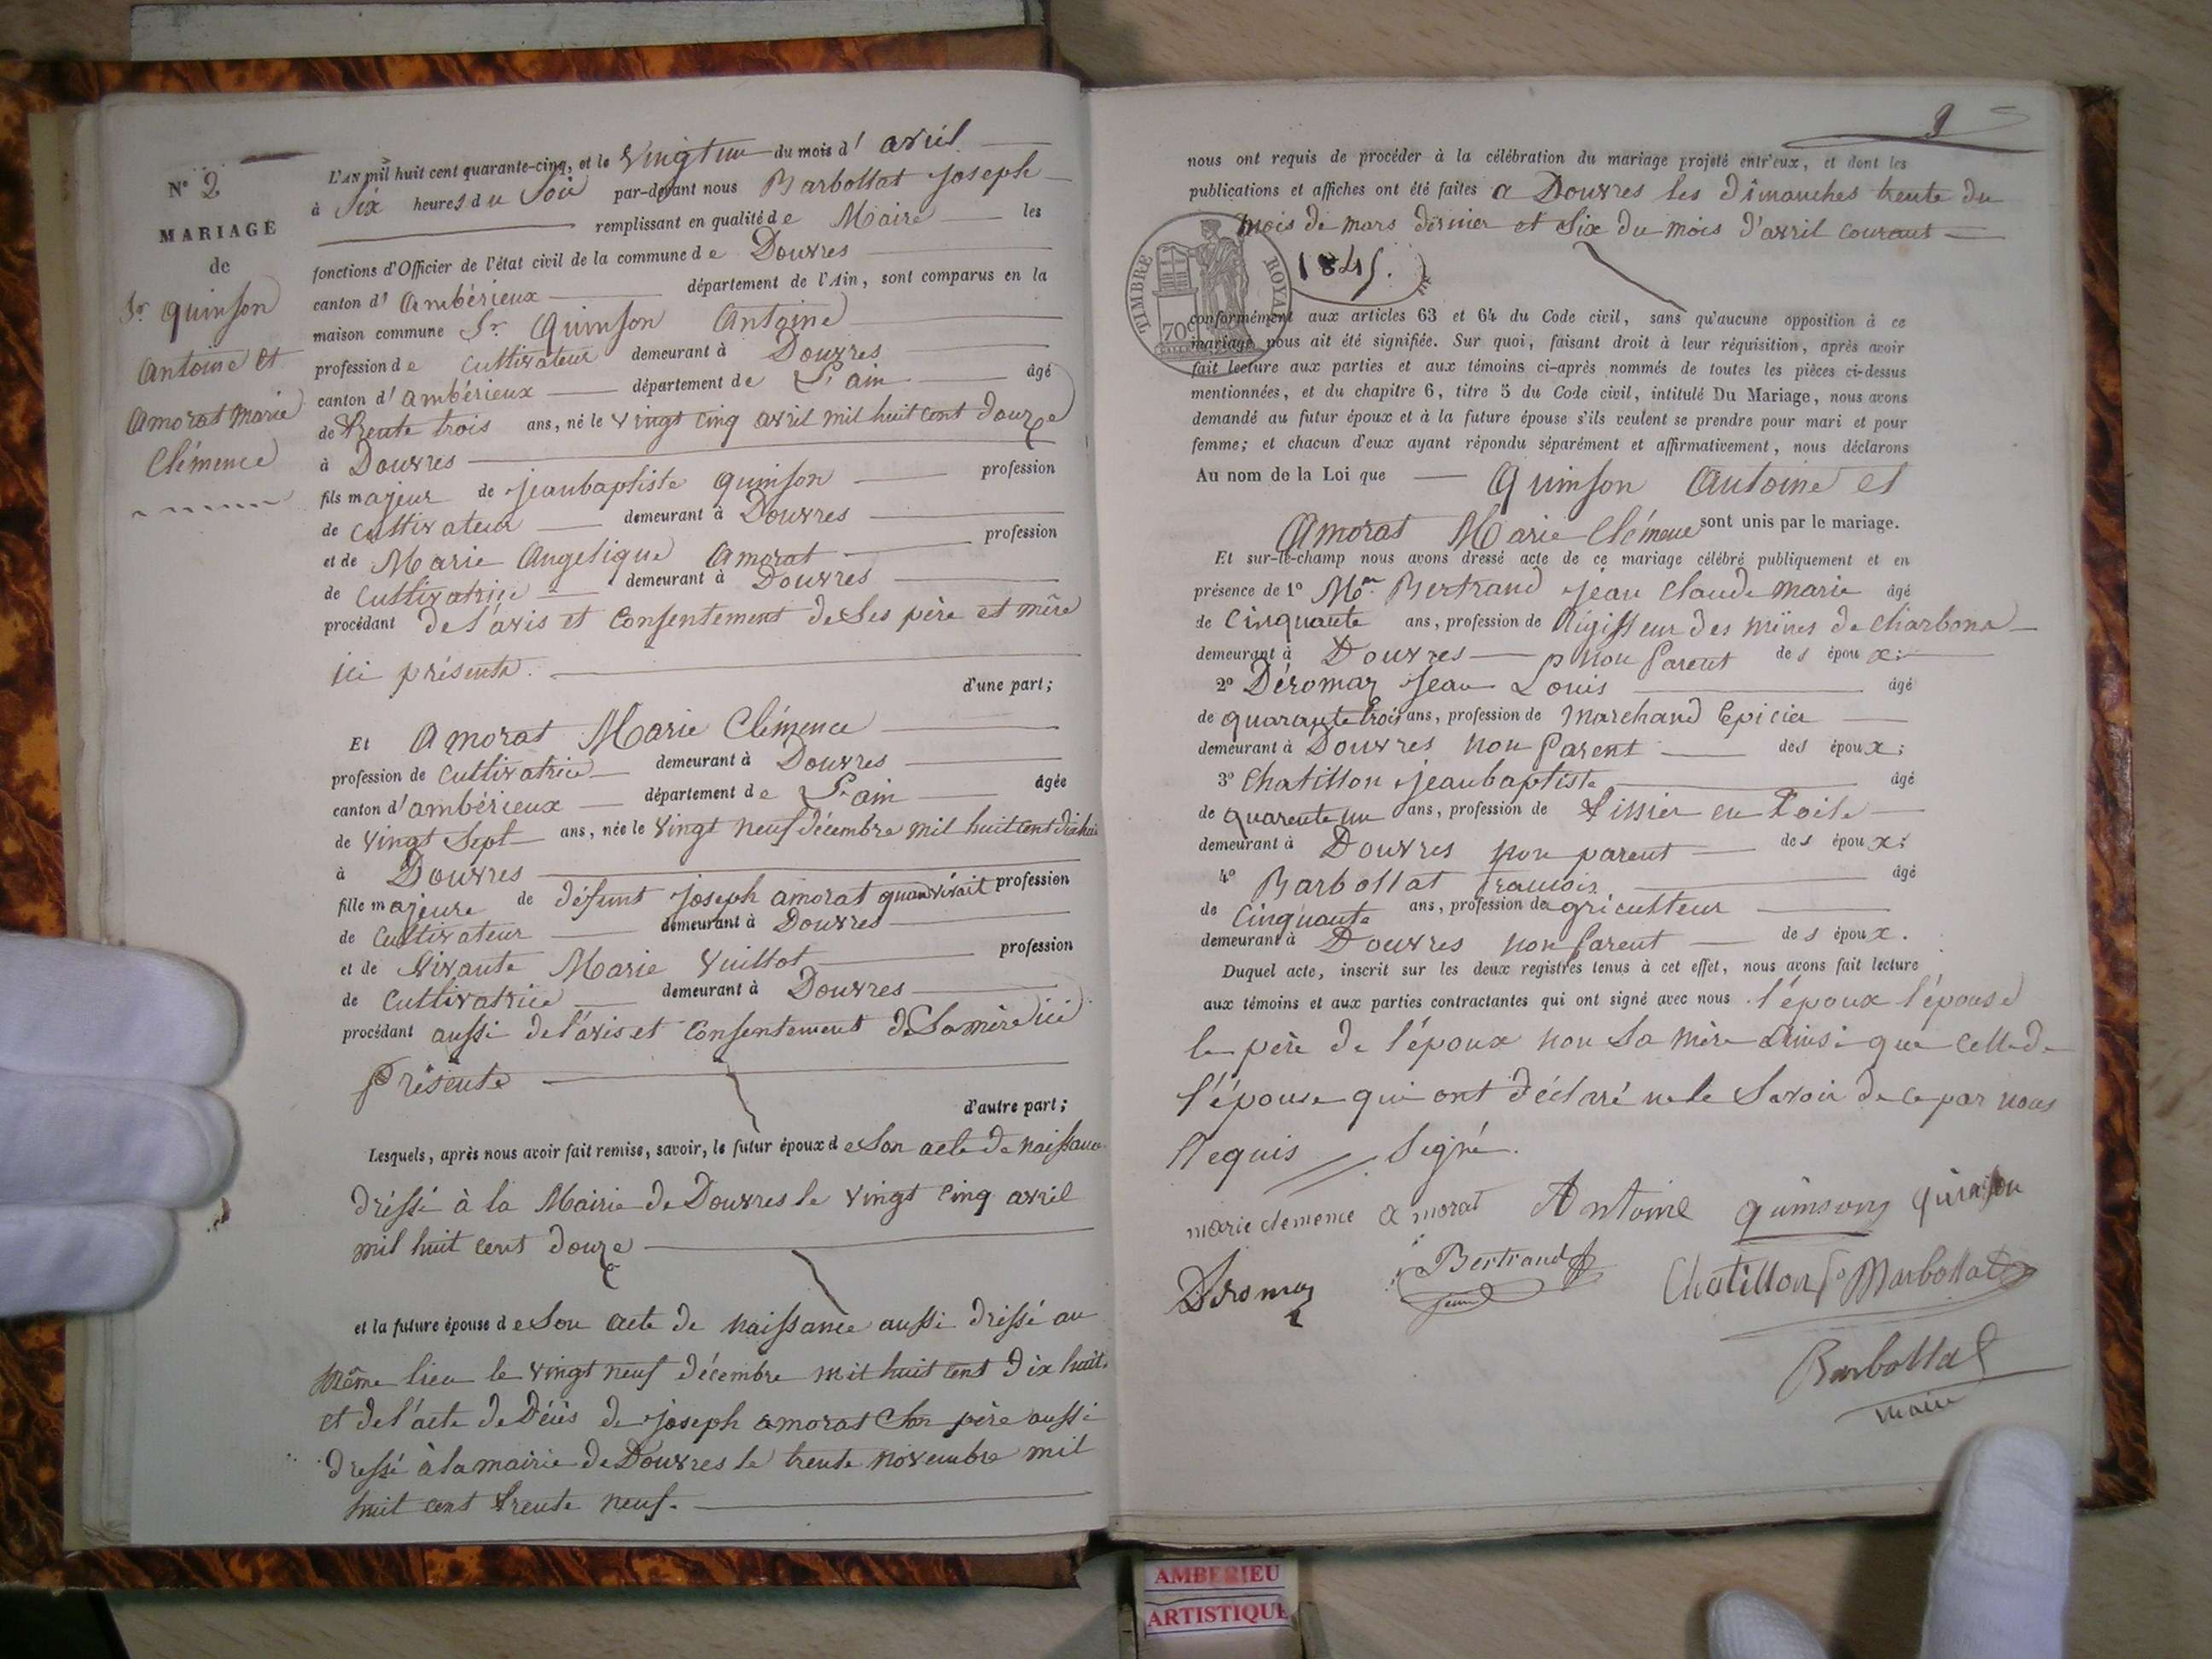 N° 2
MARIAGE
de
Sr. quinson
antoine et
amorat marie
Clémence
L'AN mil huit cent quarante-cinq, et le Vingt un du mois d' avril
à Six heures du Soir par-devant nous Barbollat joseph
remplissant en qualité de Maire les
fonctions d'Officier de l'état civil de la commune de Douvres
canton d' ambérieux département de l'Ain, sont comparus en la
maison commune Sr. Quinson Antoine
profession de cultivateur demeurant à Douvres
canton d' ambérieux département de L'ain âgé
de trente trois ans, né le vingt cinq avril mil huit cent douze
à Douvres
fils majeur de jeanbaptiste quinson profession
de cultivateur demeurant à Douvres
et de Marie Angelique Amorat profession
de cultivatrice demeurant à Douvres
procédant de l'avis et consentement de Ses père et mère
ici présents.
d'une part;
Et Amorat Marie Clémence
profession de cultivatrice demeurant à Douvres
canton d' ambérieux département de L'ain âgée
de vingt Sept ans, née le vingt neuf décembre mil huit cent dix huit
à Douvres
fille majeure de défunt joseph amorat quand vivait profession
de cultivateur demeurant à Douvres
et de vivante Marie Vuillot profession
de cultivatrice demeurant à Douvres
procédant aussi de l'avis et consentement de Sa mère ici
Présente
d'autre part;
Lesquels, après nous avoir fait remise, savoir, le futur époux de Son acte de naissance
dréssé à la Mairie de Douvres le vingt cinq avril
mil huit cent douze
et la future épouse de Son acte de naissance aussi dréssé au
même lieu le vingt neuf décembre mil huit cent dix huit.
et de l'acte de Décès de joseph amorat Son père aussi
dressé à la mairie de Douvres le trente novembre mil
huit cent trente neuf.
9
nous ont requis de procéder à la célébration du mariage projeté entr'eux, et dont les
publications et affiches ont été faites a Douvres les dimanches trente du
mois de mars dernier et Six du mois d'avril courant
1845.
TIMBRE ROYAL
70c
conformément aux articles 63 et 64 du Code civil, sans qu'aucune opposition à ce
mariage nous ait été signifiée. Sur quoi, faisant droit à leur réquisition, après avoir
fait lecture aux parties et aux témoins ci-après nommés de toutes les pièces ci-dessus
mentionnées, et du chapitre 6, titre 5 du Code civil, intitulé Du Mariage, nous avons
demandé au futur époux et à la future épouse s'ils veulent se prendre pour mari et pour
femme; et chacun d'eux ayant répondu séparément et affirmativement, nous déclarons
Au nom de la Loi que Quinson Antoine et
Amorat Marie Clémence sont unis par le mariage.
Et sur-le-champ nous avons dressé acte de ce mariage célébré publiquement et en
présence de 1° Mr. Bertrand jean claude marie âgé
de Cinquante ans, profession de Régisseur des mines de charbons
demeurant à Douvres non Parent des époux;
2° Déromaz jean Louis âgé
de quarante trois ans, profession de Marchand Epicier
demeurant à Douvres non Parent des époux;
3° Chatillon jeanbaptiste âgé
de quarente un ans, profession de tissier en toile
demeurant à Douvres non parent des époux;
4° Barbollat francois âgé
de cinquante ans, profession de agriculteur
demeurant à Douvres non Parent des époux.
Duquel acte, inscrit sur les deux registres tenus à cet effet, nous avons fait lecture
aux témoins et aux parties contractantes qui ont signé avec nous l'époux l'épouse
le père de l'époux non Sa mère ainsi que celle de
l'épouse qui ont déclaré ne le Savoir de ce par nous
Requis Signé.
marie clemence amorat Antoine quinson quinson
Déromaz Bertrand Chatillon fs Barbollat
Barbollat
maire
AMBERIEU
ARTISTIQUE